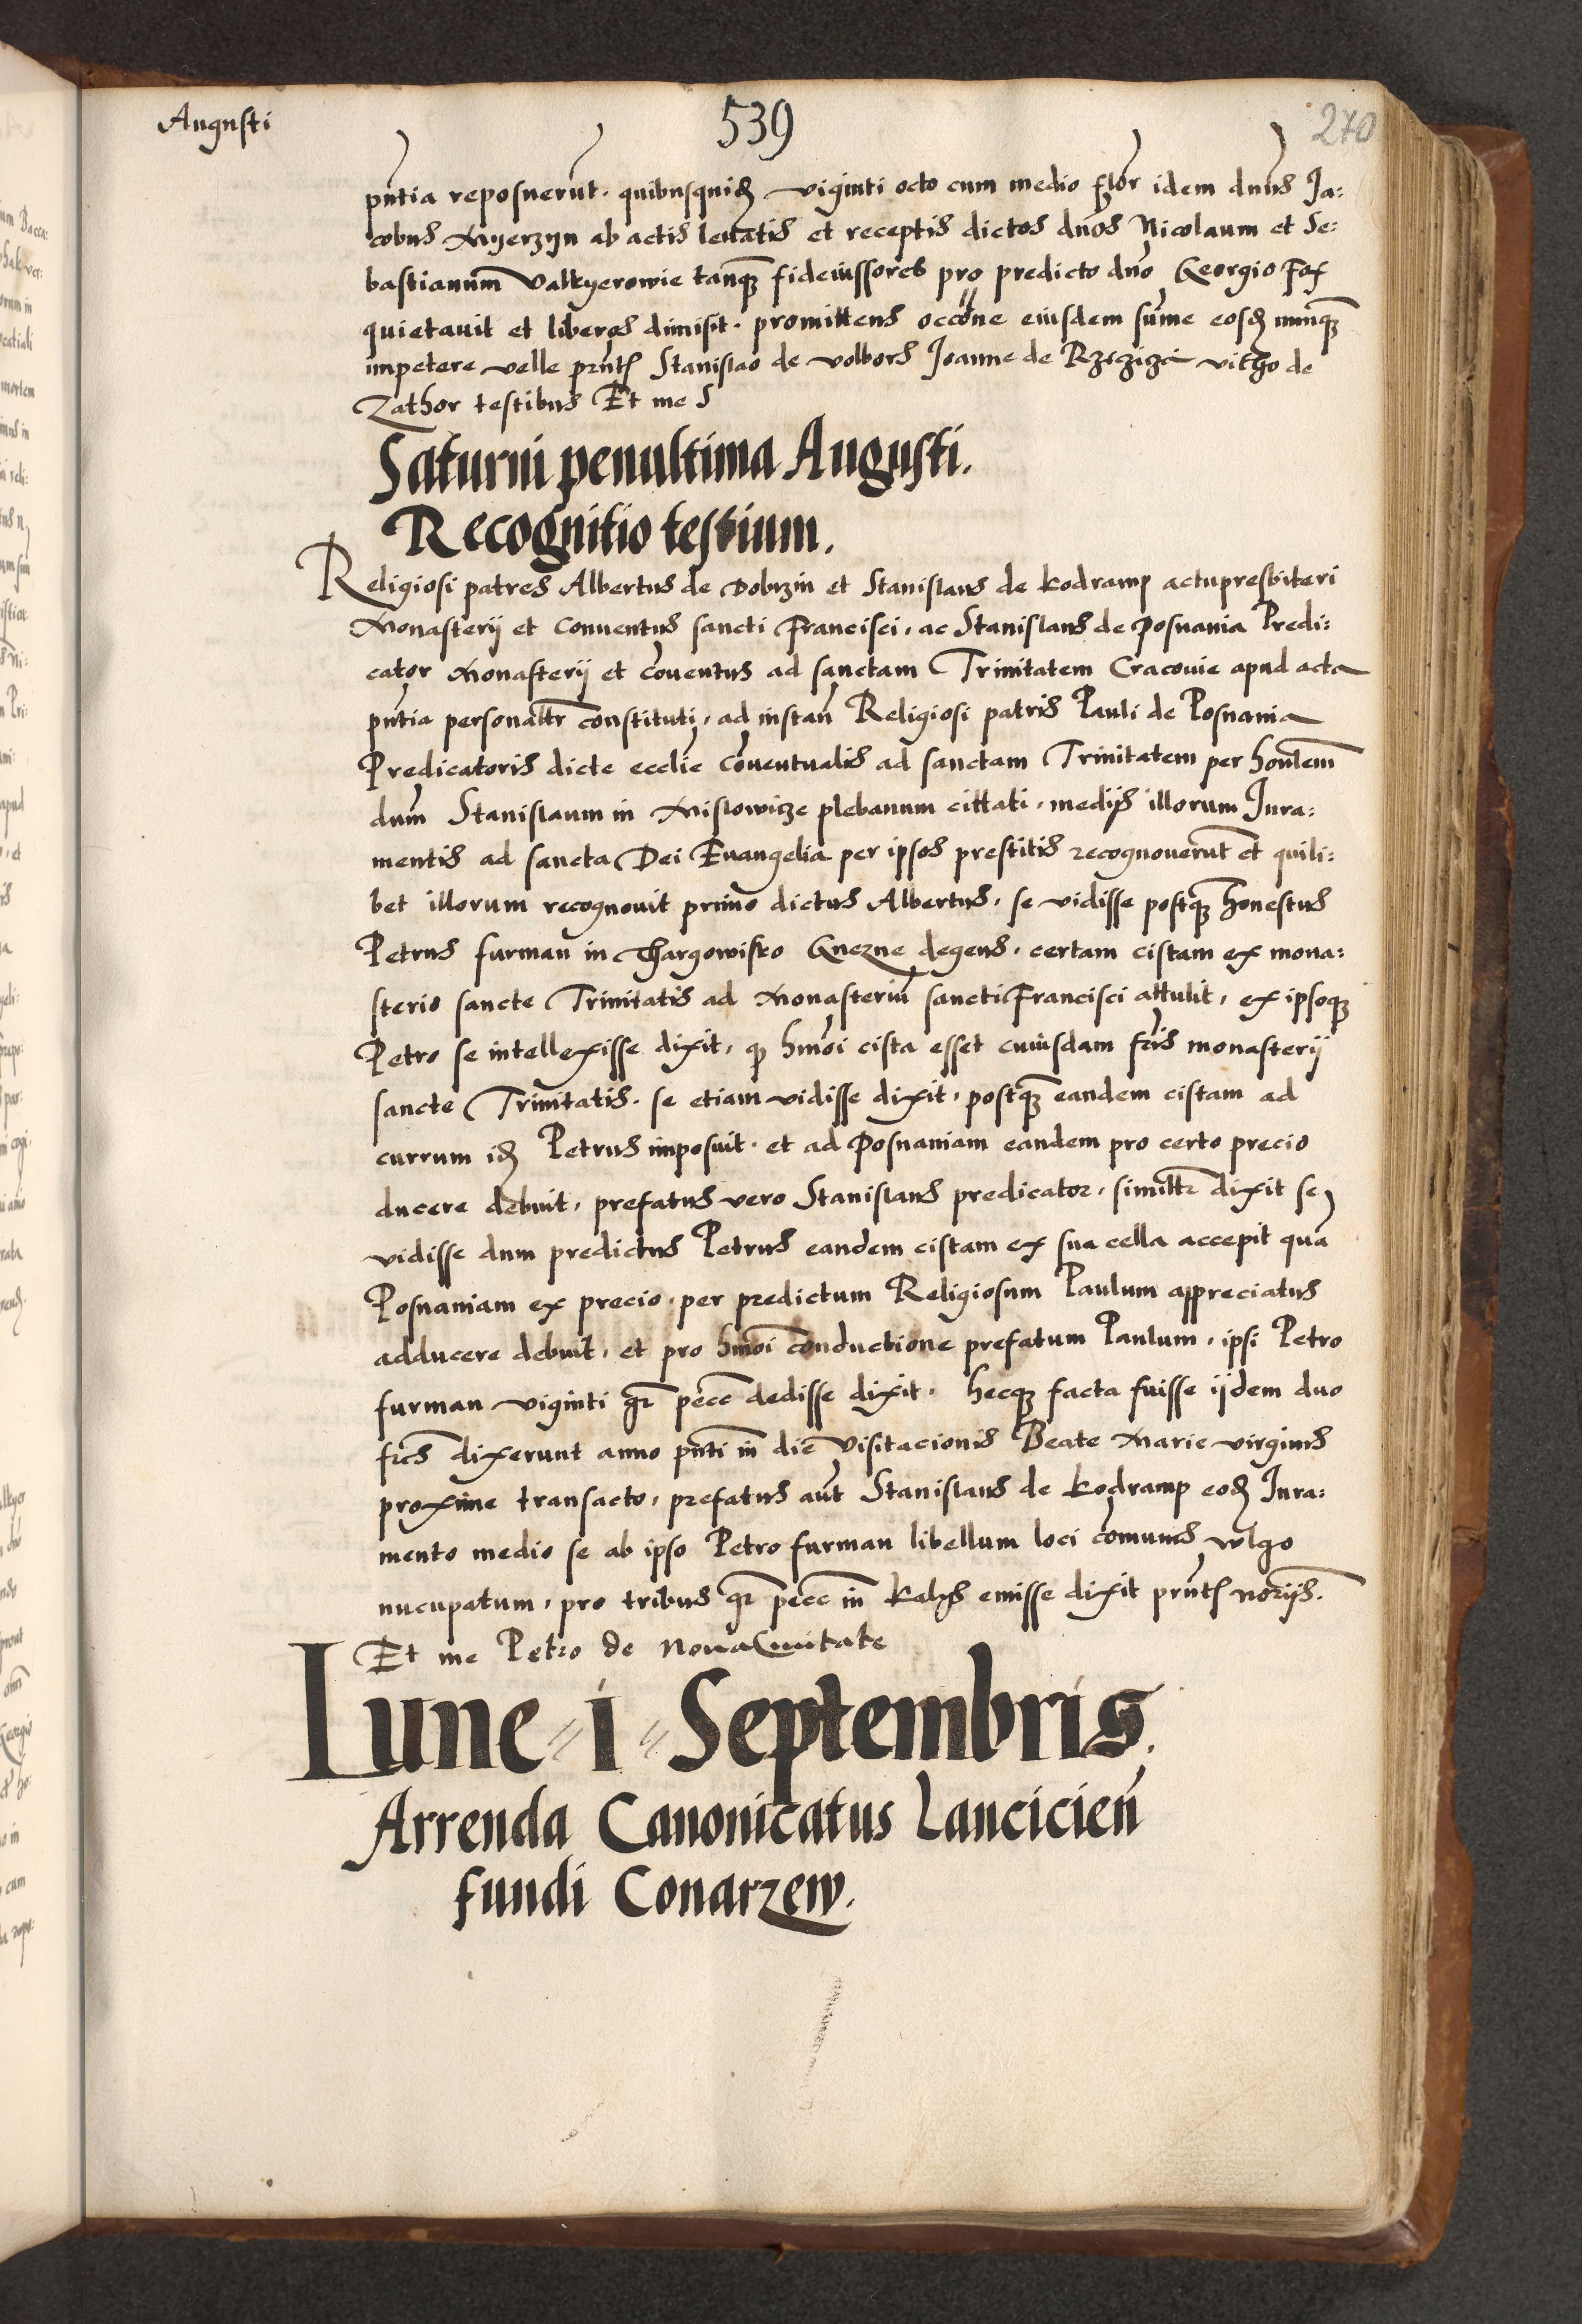 Augusti
539
270
pñtia reposuerũt. quibusquidẽ viginti octo cum medio flor idem dñus Ja:
cobus Myerzyn ab actis leuatis et receptis dictos dños Nicolaum et Se:
bastianum Valkyerowie tanq̃ fideiussores pro predicto dño Georgio Fox
quietauit et liberos dimisit. promittens occõne eiusdem sũme eosdẽ nunq̃
impetere velle pñtẽ Stanislao de volbors Joanne de Rzeziza vitho de
Zathor testibus Et me S
Saturni penultima Augusti.
Recognitio testium.
Religiosi patres Albertus de Dobrzin et Stanislaus de kodramp actupresbiteri
Monasterij et Conuentus sancti Francisci, ac Stanislaus de Posnania Predi:
cator Monasterij et Cõuentus ad sanctam Trinitatem Cracouie apud acta
pñtia personalr̃ constituti, ad instañ Religiosi patris Pauli de Posnania
Predicatoris dicte ecclie Cõuentualis ad sanctam Trinitatem per honlem̃
dum̃ Stanislaum in Mislowicze plebanum cittati, medijs illorum Jura:
mentis ad sancta Dei Euangelia per ipsos prestitis recognouerũt et quili:
bet illorum recognouit primo dictus Albertus, se vidisse postq̃ honestus
Petrus furman in Thargowisko Gnezne degens, certam cistam ex mona:
sterio sancte Trinitatis ad Monasteriũ sancti Francisci attulit, ex ipsoq̃
Petro se intellexisse dixit, q̃ hmõi cista esset cuiusdam fr̃is monasterij
sancte Trinitatis. se etiam vidisse dixit, postq̃ eandem cistam ad
currum idẽ Petrus imposuit. et ad Posnaniam eandem pro certo precio
ducere debuit, prefatus vero Stanislaus predicator, similr̃ dixit se
vidisse dum predictus Petrus eandem cistam ex sua cella accepit quã
Posnaniam ex precio per predictum Religiosum Paulum appreciatus
adducere debuit, et pro hmõi conductione prefatum Paulum, ipsi Petro
furman viginti gr̃ pecc̃ dedisse dixit. hecq̃ facta fuisse ijdem duo
fr̃es dixerunt anno pñti in die Visitacionis Beate Marie virginis
proxime transacto, prefatus aũt Stanislaus de kodramp eodẽ Jura:
mento medio se ab ipso Petro furman libellum loci cõmunes vulgo
nucupatum, pro tribus gr̃ pecc̃ in kalys emisse dixit pñtẽ norijs.
Et me Petro de Noua Ciuitate
Lune i Septembris.
Arrenda Canonicatus Lancicieñ
fundi Conarzew.